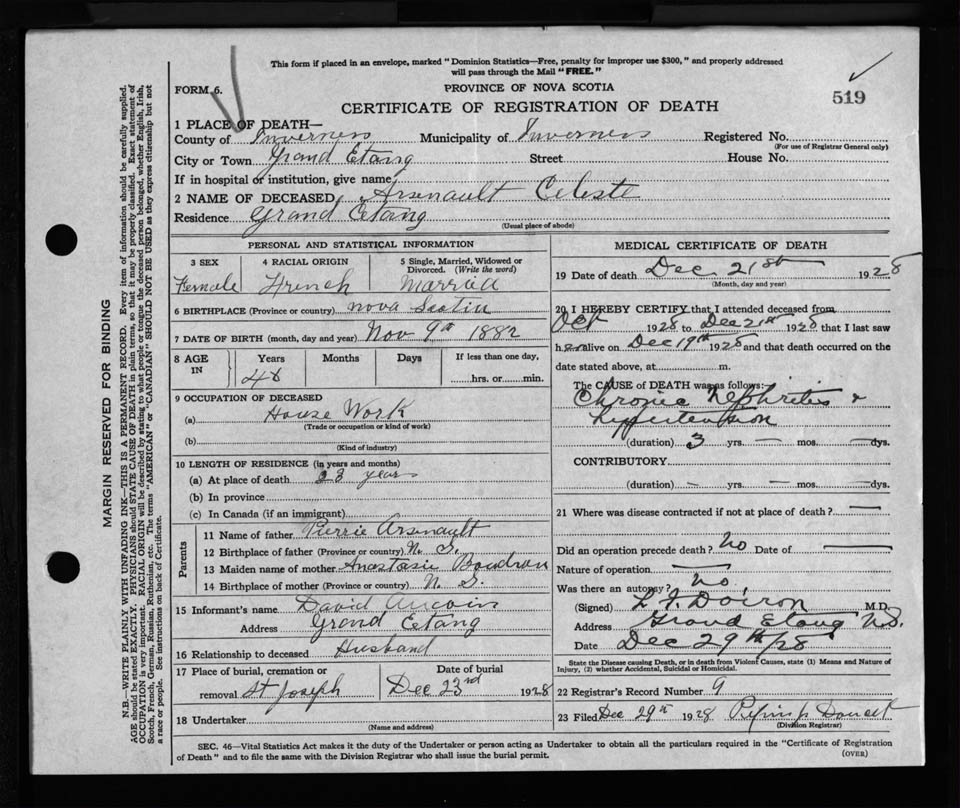 This form if placed in an envelope, marked "Dominion Statistics—Free, penalty for improper use $300," and properly addressed
will pass through the Mail "FREE."
FORM 6.
PROVINCE OF NOVA SCOTIA
519
CERTIFICATE OF REGISTRATION OF DEATH
1 PLACE OF DEATH—
County of Inverness Municipality of Inverness Registered No.
(For use of Registrar General only)
City or Town Grand Etang Street House No.
If in hospital or institution, give name
2 NAME OF DECEASED Arsenault Celeste
Residence Grand Etang
(Usual place of abode)
MARGIN RESERVED FOR BINDING
N.B.—WRITE PLAINLY WITH UNFADING INK—THIS IS A PERMANENT RECORD. Every item of information should be carefully supplied.
AGE should be stated EXACTLY. PHYSICIANS should STATE CAUSE OF DEATH in plain terms, so that it may be properly classified. Exact statement of
OCCUPATION is very important. RACIAL ORIGIN will be described by stating to what people or tongue the deceased person belonged, whether English, Irish,
Scotch, French, German, Russian, Ruthenian, etc. The terms "AMERICAN" or "CANADIAN" SHOULD NOT BE USED as they express citizenship but not
a race or people. See instructions on back of Certificate.
PERSONAL AND STATISTICAL INFORMATION
3 SEX 4 RACIAL ORIGIN 5 Single, Married, Widowed or
Divorced. (Write the word)
Female French Married
6 BIRTHPLACE (Province or country) Nova Scotia
7 DATE OF BIRTH (month, day and year) Nov 9th 1882
8 AGE IN Years Months Days If less than one day,
hrs. or min.
9 OCCUPATION OF DECEASED
(a) House Work
(Trade or occupation or kind of work)
(b)
(Kind of industry)
10 LENGTH OF RESIDENCE (in years and months)
(a) At place of death 23 years
(b) In province
(c) In Canada (if an immigrant)
Parents
11 Name of father Pierrie Arsenault
12 Birthplace of father (Province or country) N. S.
13 Maiden name of mother Anastasie Boudrou
14 Birthplace of mother (Province or country) N. S.
15 Informant's name David Aucoin
Address Grand Eetang
16 Relationship to deceased Husband
17 Place of burial, cremation or Date of burial
removal St Joseph Dec 23rd 1928
18 Undertaker
(Name and address)
MEDICAL CERTIFICATE OF DEATH
19 Date of death Dec. 21st 1928
(Month, day and year)
20 I HEREBY CERTIFY that I attended deceased from
Oct 1928 to Dec 21st 1928 that I last saw
her alive on Dec 19th 1928 and that death occurred on the
date stated above, at m.
The CAUSE of DEATH was as follows:—
Chronic Nephritis &
Hypertension
(duration) 3 yrs. — mos. — dys.
CONTRIBUTORY
(duration) — yrs. — mos. — dys.
21 Where was disease contracted if not at place of death? —
Did an operation precede death? No Date of —
Nature of operation —
Was there an autopsy? No.
(Signed) L. J. Doiron M.D.
Address Grand Etang N.S.
Date Dec 29th/28
State the Disease causing Death, or in death from Violent Causes, state (1) Means and Nature of
Injury, (2) whether Accidental, Suicidal or Homicidal.
22 Registrar's Record Number 9
23 Filed Dec 29th 1928 Doucet
(Division Registrar)
SEC. 46—Vital Statistics Act makes it the duty of the Undertaker or person acting as Undertaker to obtain all the particulars required in the "Certificate of Registration
of Death" and to file the same with the Division Registrar who shall issue the burial permit.
(OVER)